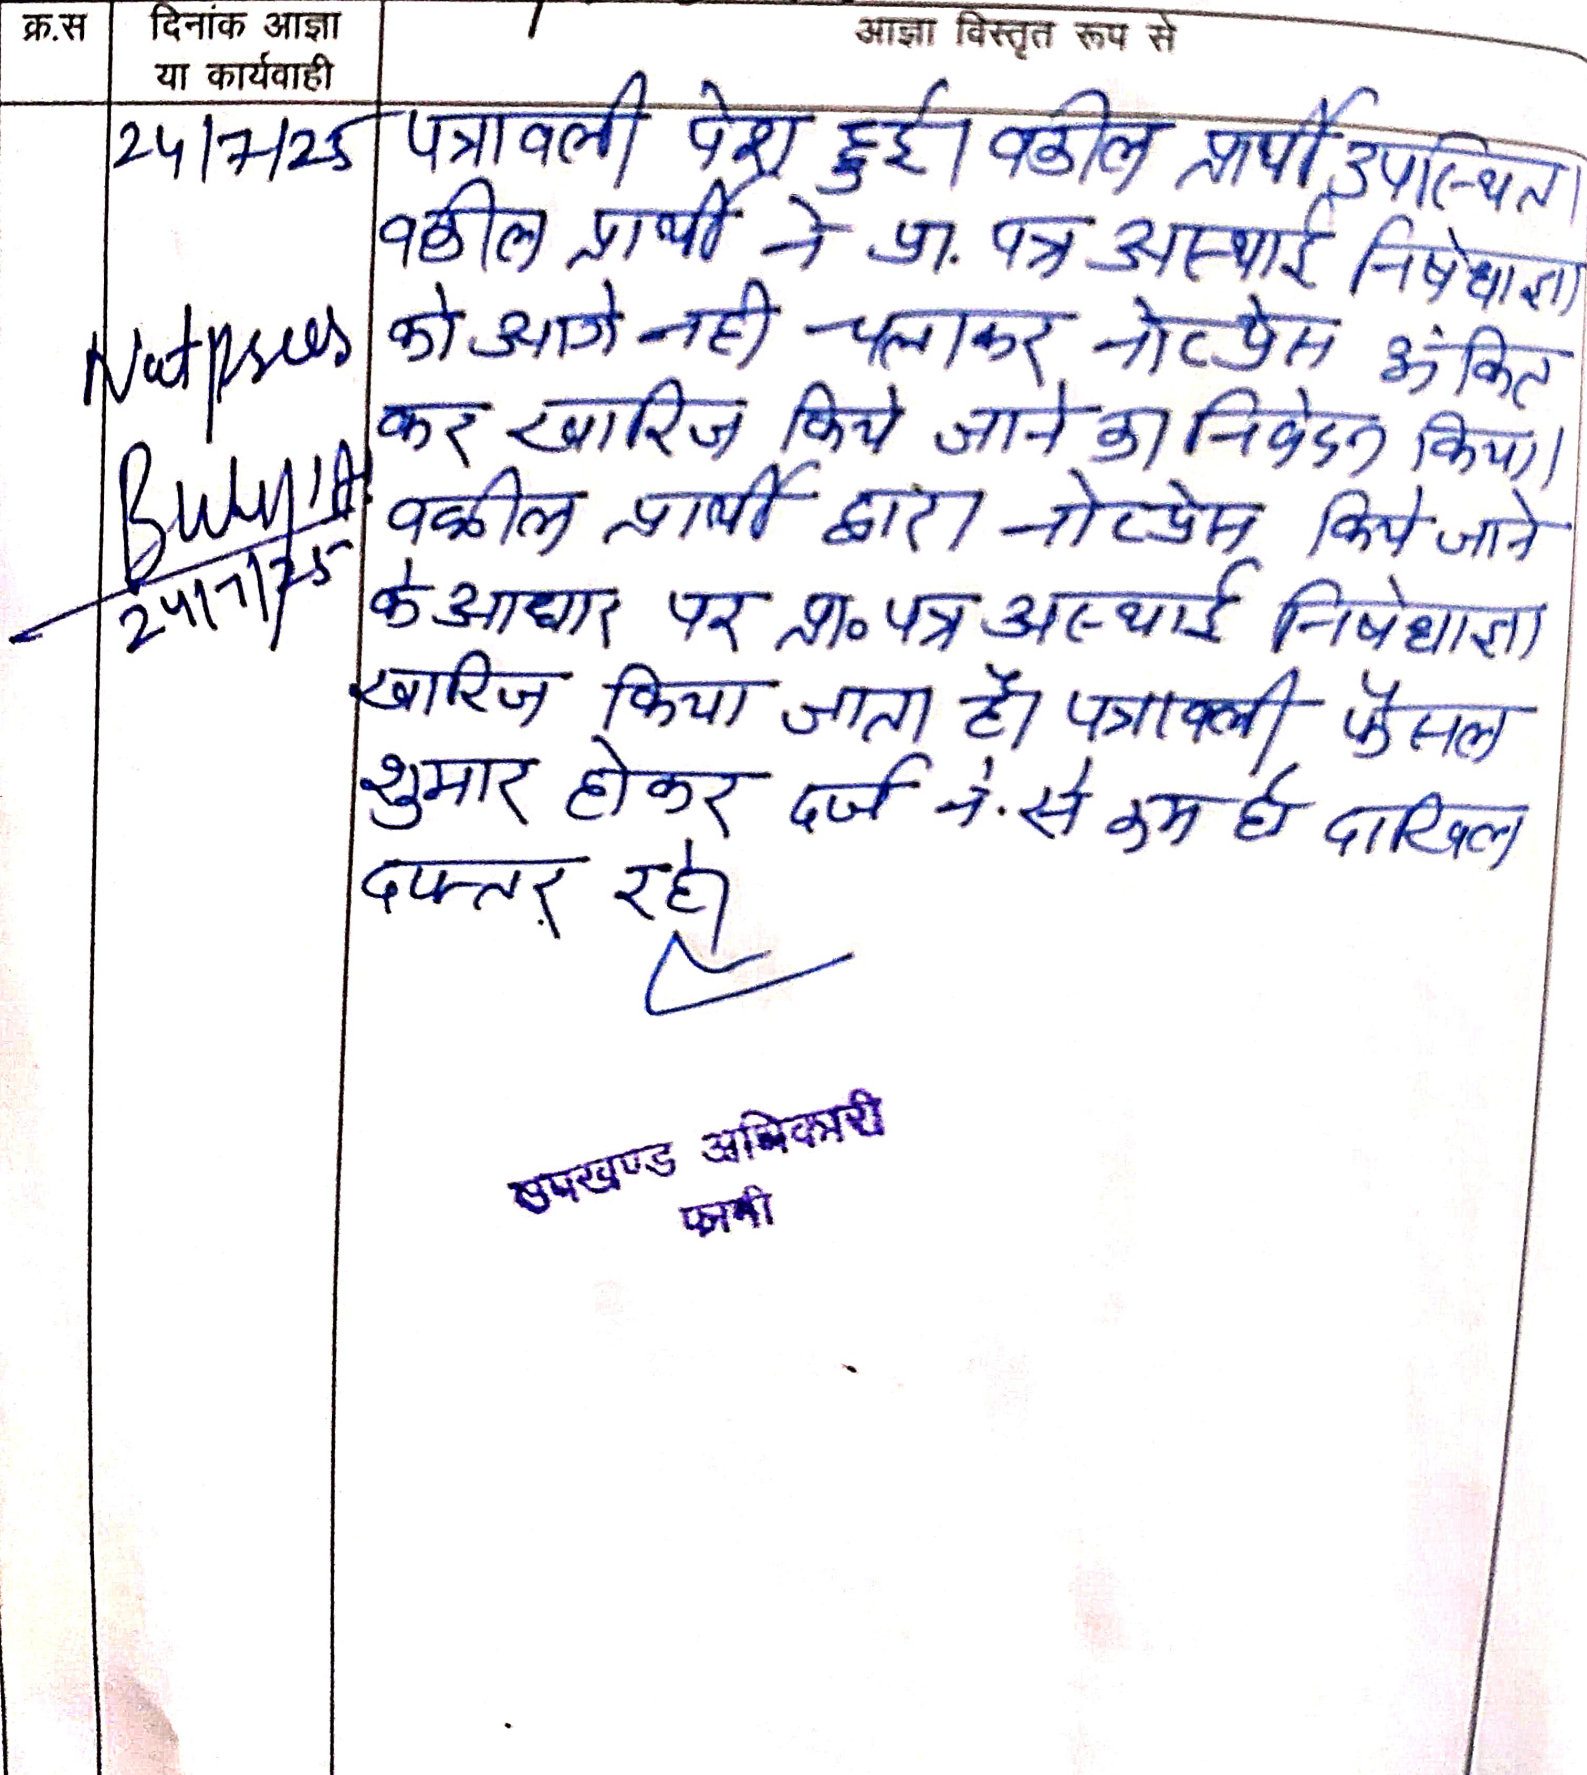 क्र.स
दिनांक आज्ञा
या कार्यवाही
आज्ञा विस्तृत रूप से
24/7/25
पत्रावली पेश हुई। वकील प्रार्थी उपस्थित।
वकील प्रार्थी ने प्रा. पत्र अस्थाई निषेधाज्ञा
को आगे नही चलाकर नोटप्रेस अंकित
कर खारिज किये जाने का निवेदन किया।
वकील प्रार्थी द्वारा नोटप्रेस किये जाने
के आधार पर प्रा० पत्र अस्थाई निषेधाज्ञा
खारिज किया जाता है। पत्रावली फैसल
शुमार होकर दर्ज नं. से कम हो दाखिल
दफ्तर रहे।
Not press
24/7/25
उपखण्ड अधिकारी
फागी